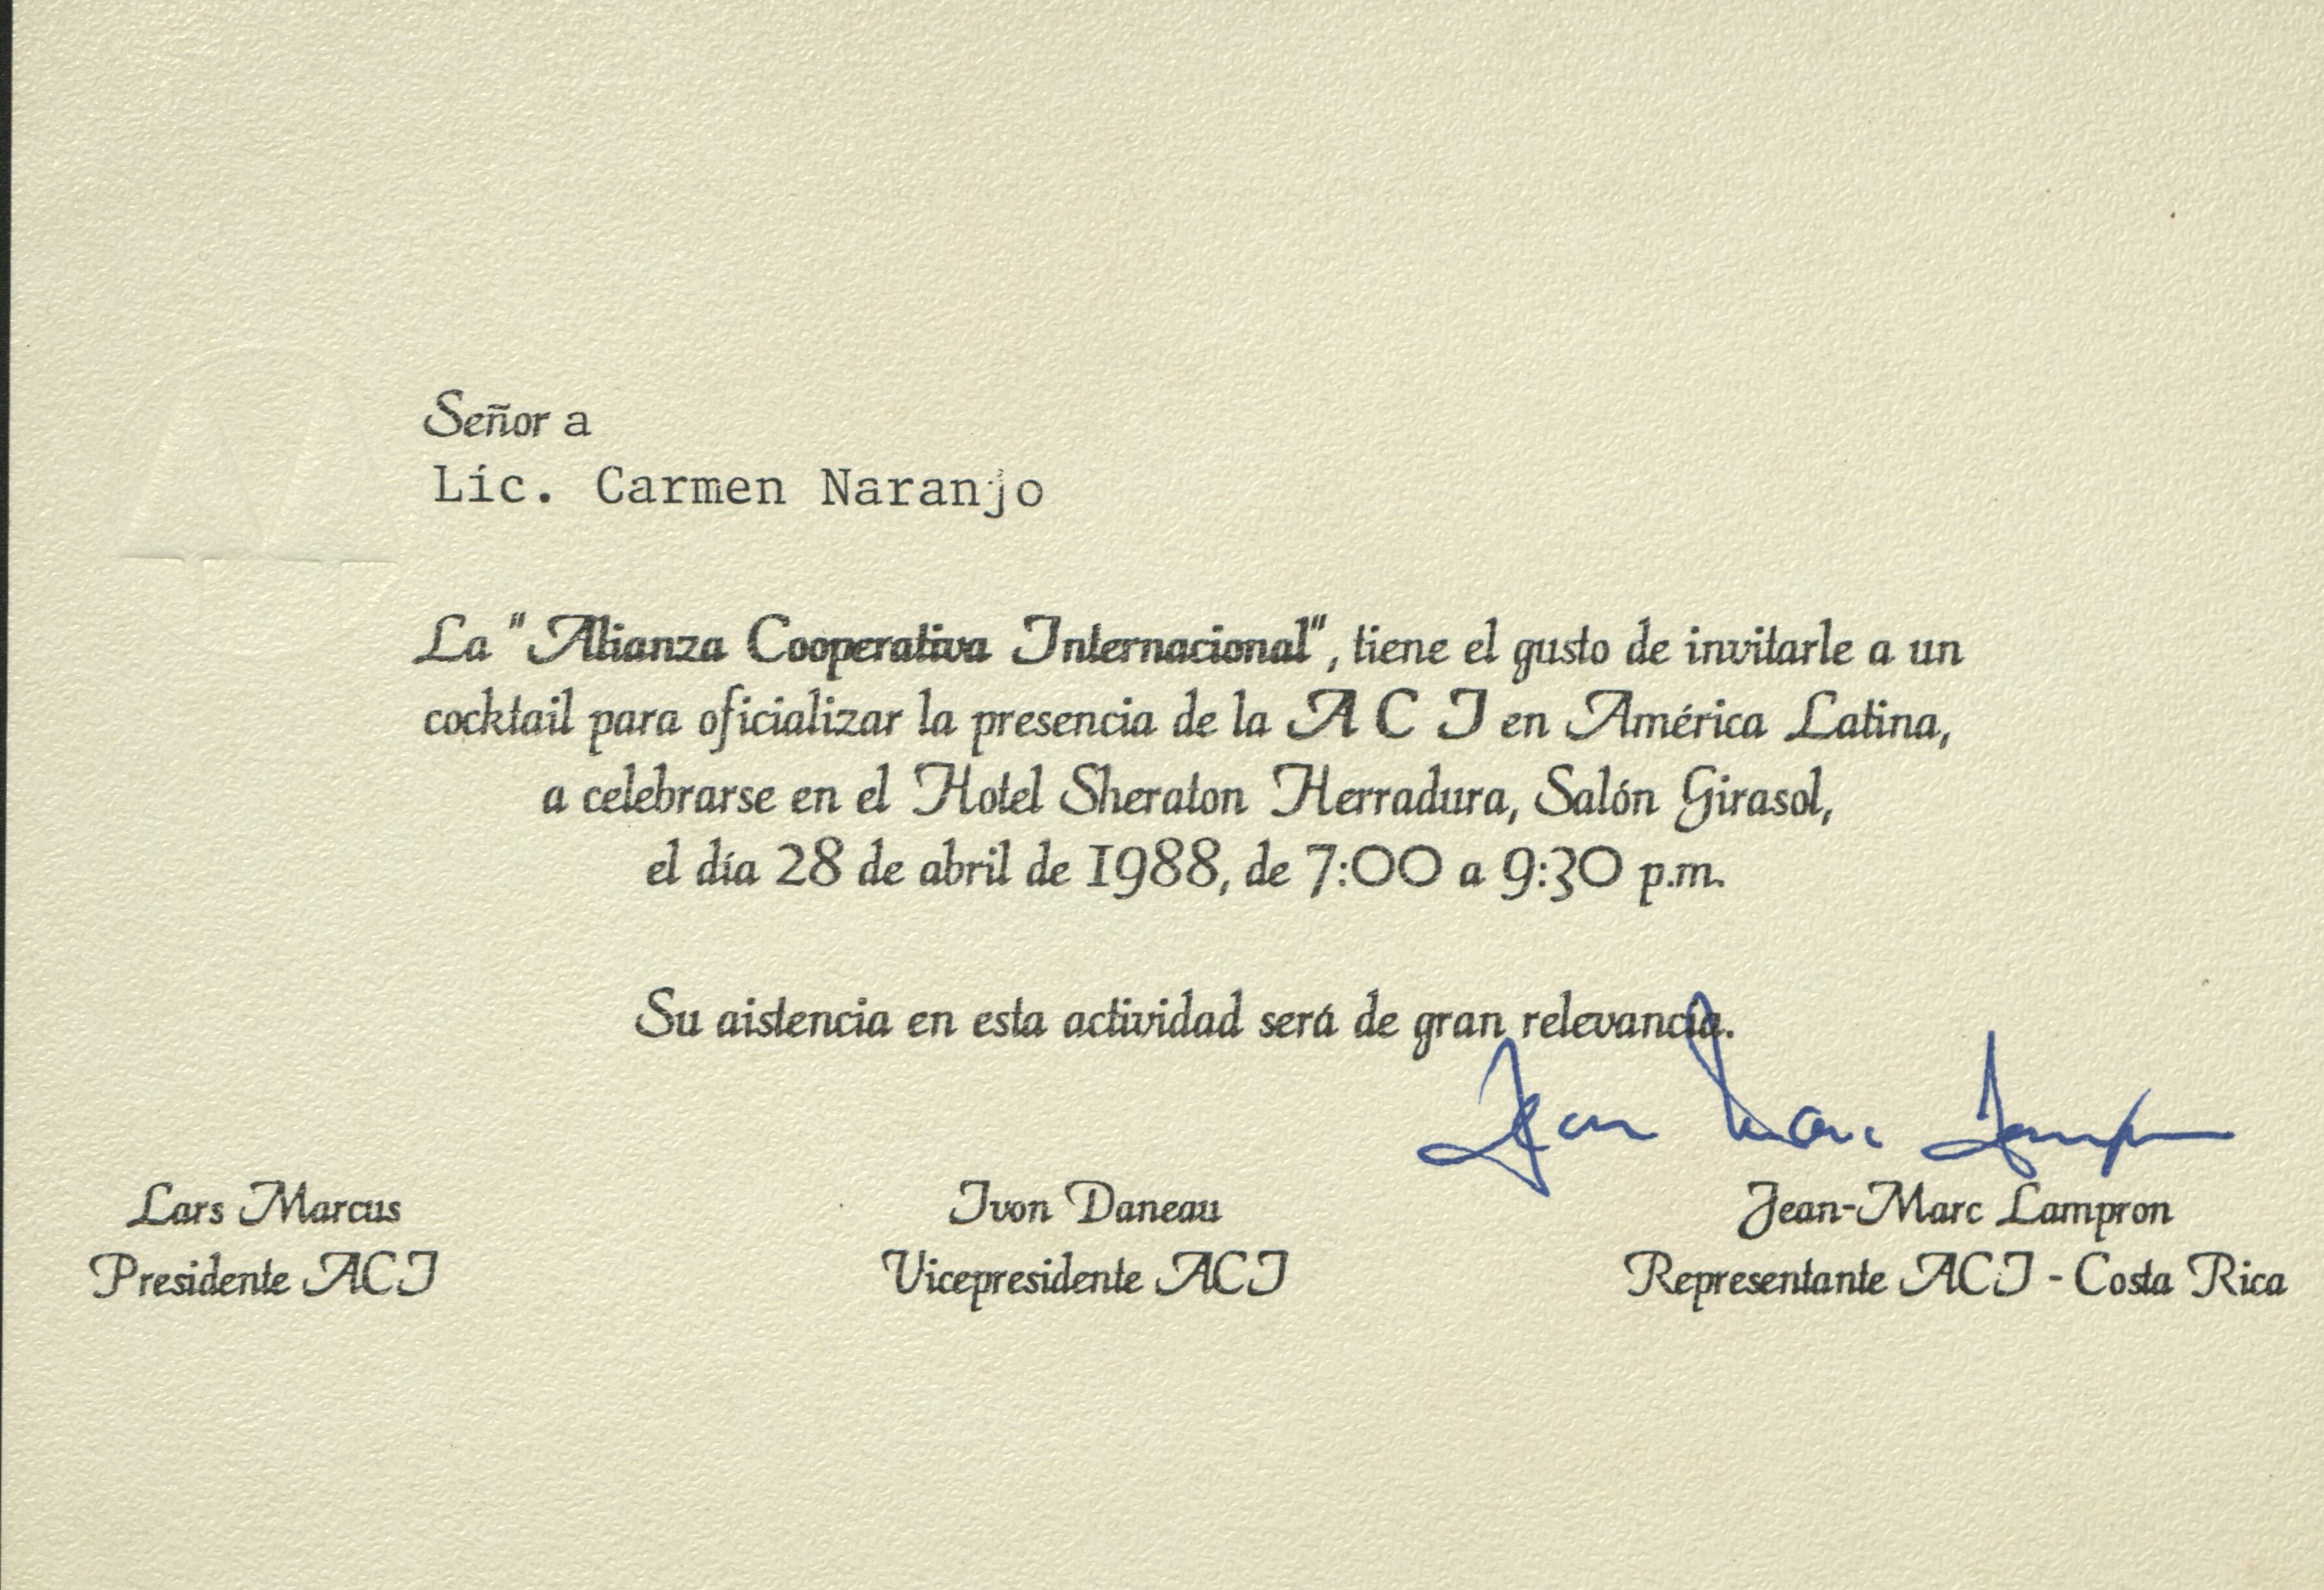 Señor a
Lic. Carmen Naranjo
La "Alianza Cooperativa Internacional", tiene el gusto de invitarle a un
cocktail para oficializar la presencia de la A C I en América Latina,
a celebrarse en el Hotel Sheraton Herradura, Salón Girasol,
el día 28 de abril de 1988, de 7:00 a 9:30 p.m.
Su aistencia en esta actividad será de gran relevancia.
Jean Marc Lampron
Lars Marcus Ivon Daneau Jean-Marc Lampron
Presidente ACI Vicepresidente ACI Representante ACI - Costa Rica